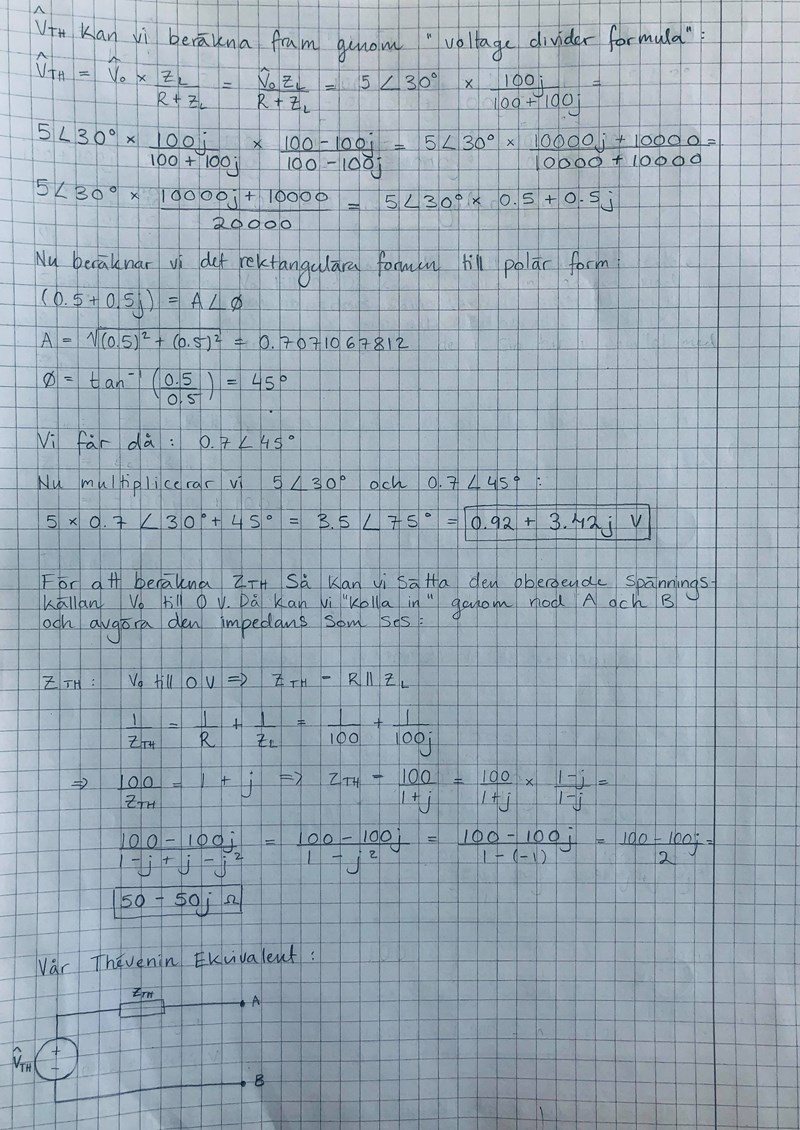 V̂TH Kan vi beräkna fram genom "voltage divider formula":
V̂TH = V̂o × ZL/(R+ZL) = V̂o ZL/(R+ZL) = 5∠30° × 100j/(100+100j) =
5∠30° × 100j/(100+100j) × (100-100j)/(100-100j) = 5∠30° × (10000j+10000)/(10000+10000) =
5∠30° × (10000j+10000)/20000 = 5∠30° × 0.5+0.5j
Nu beräknar vi det rektangulära formen till polär form:
(0.5+0.5j) = A∠Ø
A = √((0.5)²+(0.5)²) = 0.7071067812
Ø = tan⁻¹(0.5/0.5) = 45°
Vi får då: 0.7∠45°
Nu multiplicerar vi 5∠30° och 0.7∠45°:
5 × 0.7 ∠30°+45° = 3.5∠75° = 0.92 + 3.42j V
För att beräkna ZTH Så kan vi sätta den oberoende spännings-
källan Vo till 0 V. Då kan vi "kolla in" genom nod A och B
och avgöra den impedans som ses:
ZTH: Vo till 0V => ZTH = R||ZL
1/ZTH = 1/R + 1/ZL = 1/100 + 1/100j
=> 100/ZTH = 1+j => ZTH = 100/(1+j) = 100/(1+j) × (1-j)/(1-j) =
(100-100j)/(1-j+j-j²) = (100-100j)/(1-j²) = (100-100j)/(1-(-1)) = (100-100j)/2 =
50-50j Ω
Vår Thévenin Ekvivalent:
ZTH
A
V̂TH
+
-
B